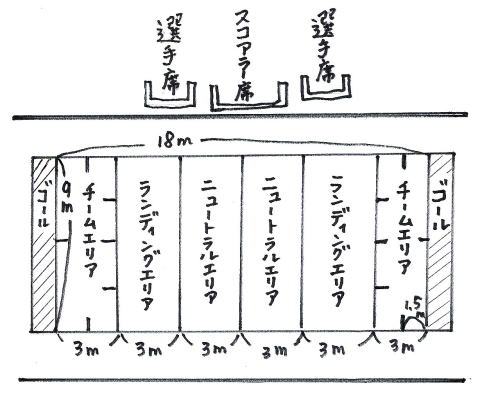 選手席
スコアラー席
選手席
18m
ゴール
9m
チームエリア
ランディングエリア
ニュートラルエリア
ニュートラルエリア
ランディングエリア
チームエリア
ゴール
1.5m
3m
3m
3m
3m
3m
3m